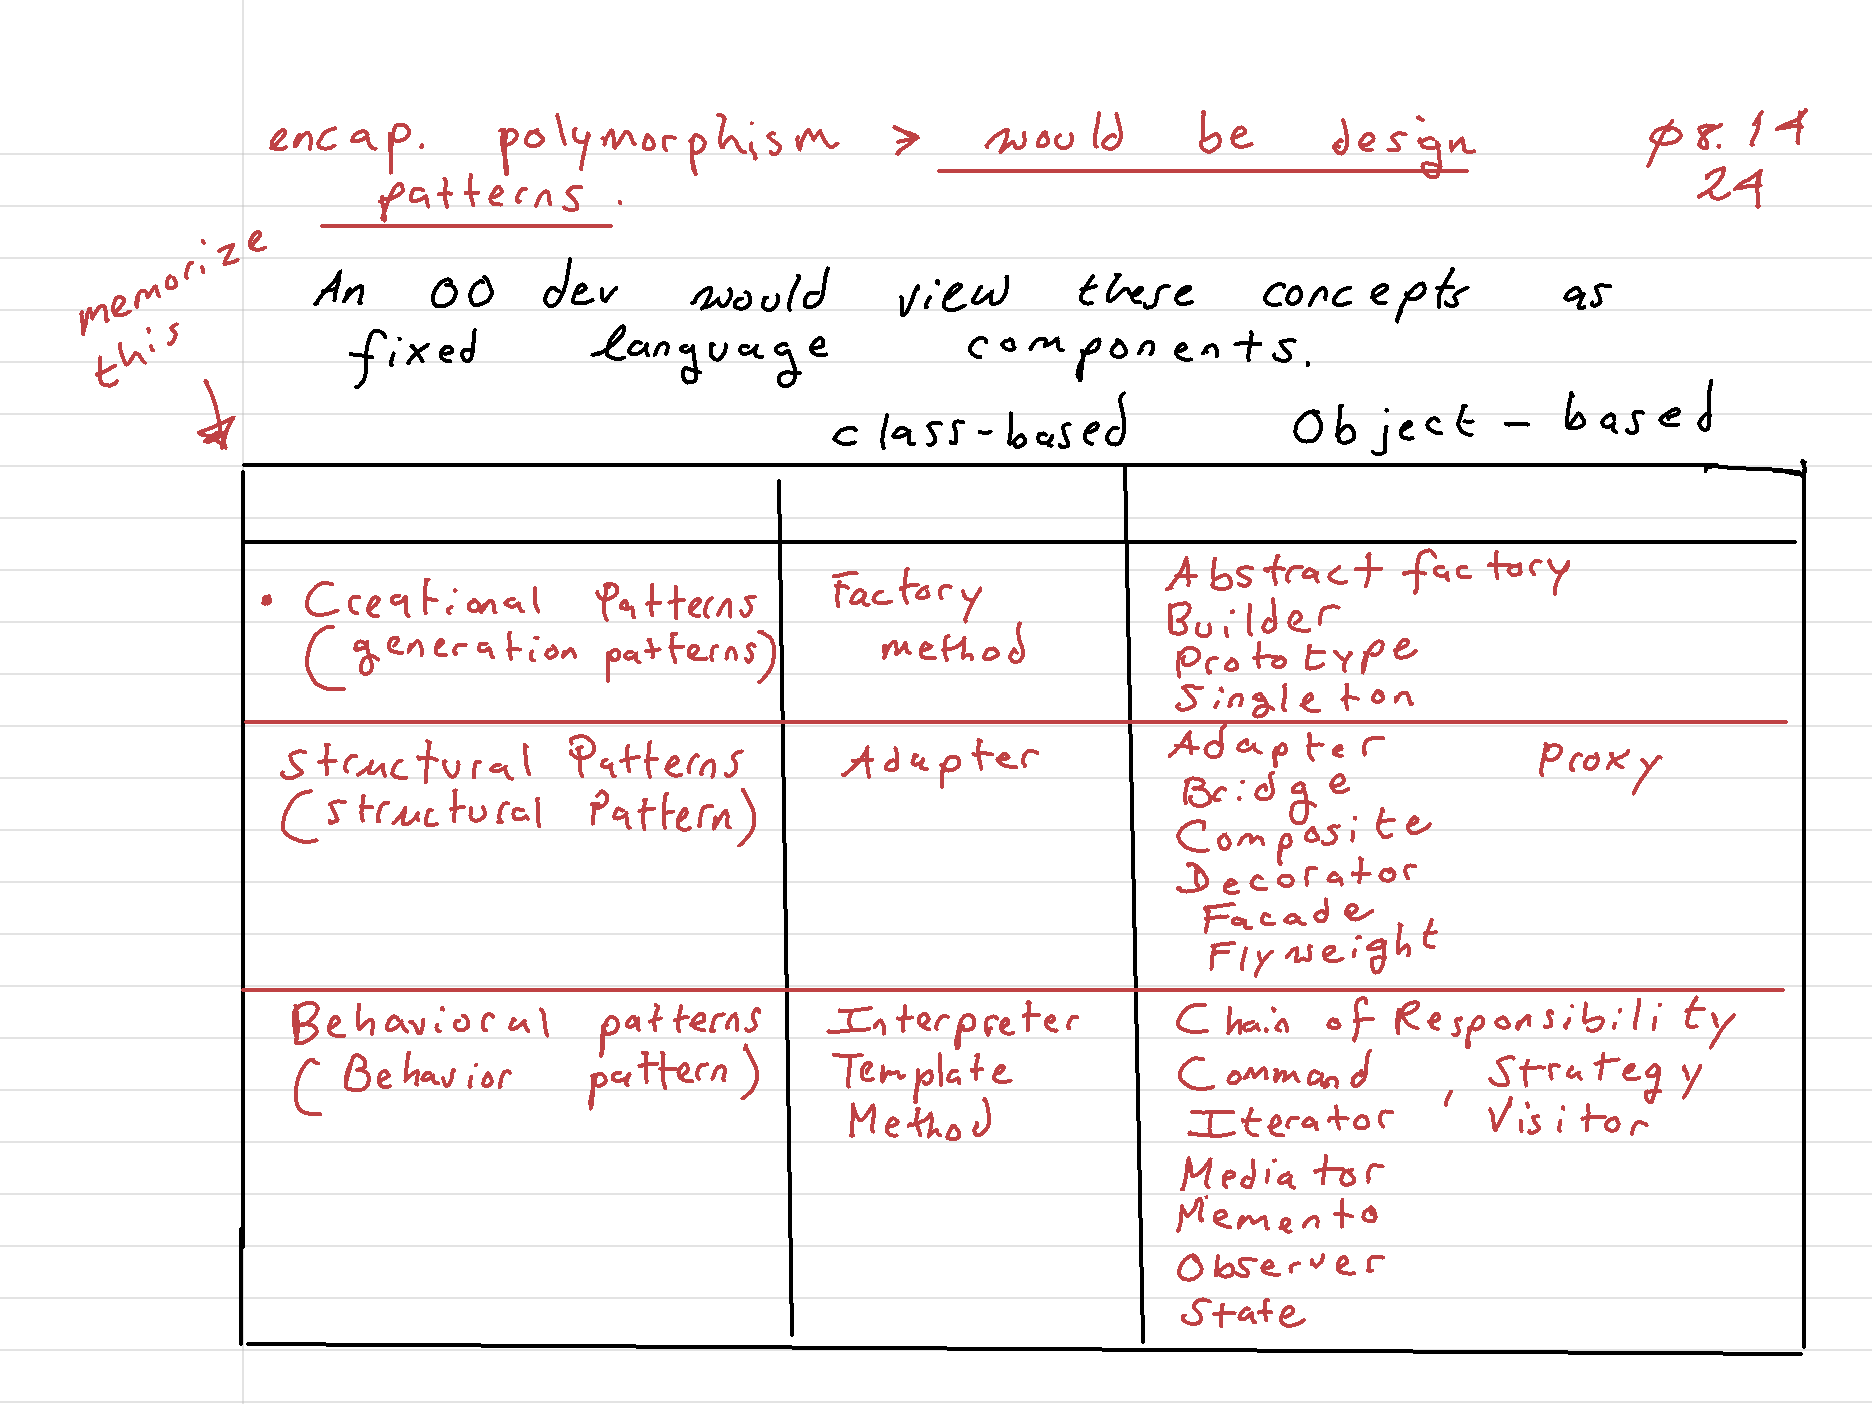 encap. polymorphism > would be design
patterns.
08.14
24
memorize
this
An OO dev would view these concepts as
fixed language components.
class-based
Object-based
• Creational Patterns
(generation patterns)
Factory
method
Abstract factory
Builder
Prototype
Singleton
Structural Patterns
(structural Pattern)
Adapter
Adapter
Proxy
Bridge
Composite
Decorator
Facade
Flyweight
Behavioral patterns
(Behavior pattern)
Interpreter
Template
Method
Chain of Responsibility
Command , Strategy
Iterator Visitor
Mediator
Memento
Observer
State